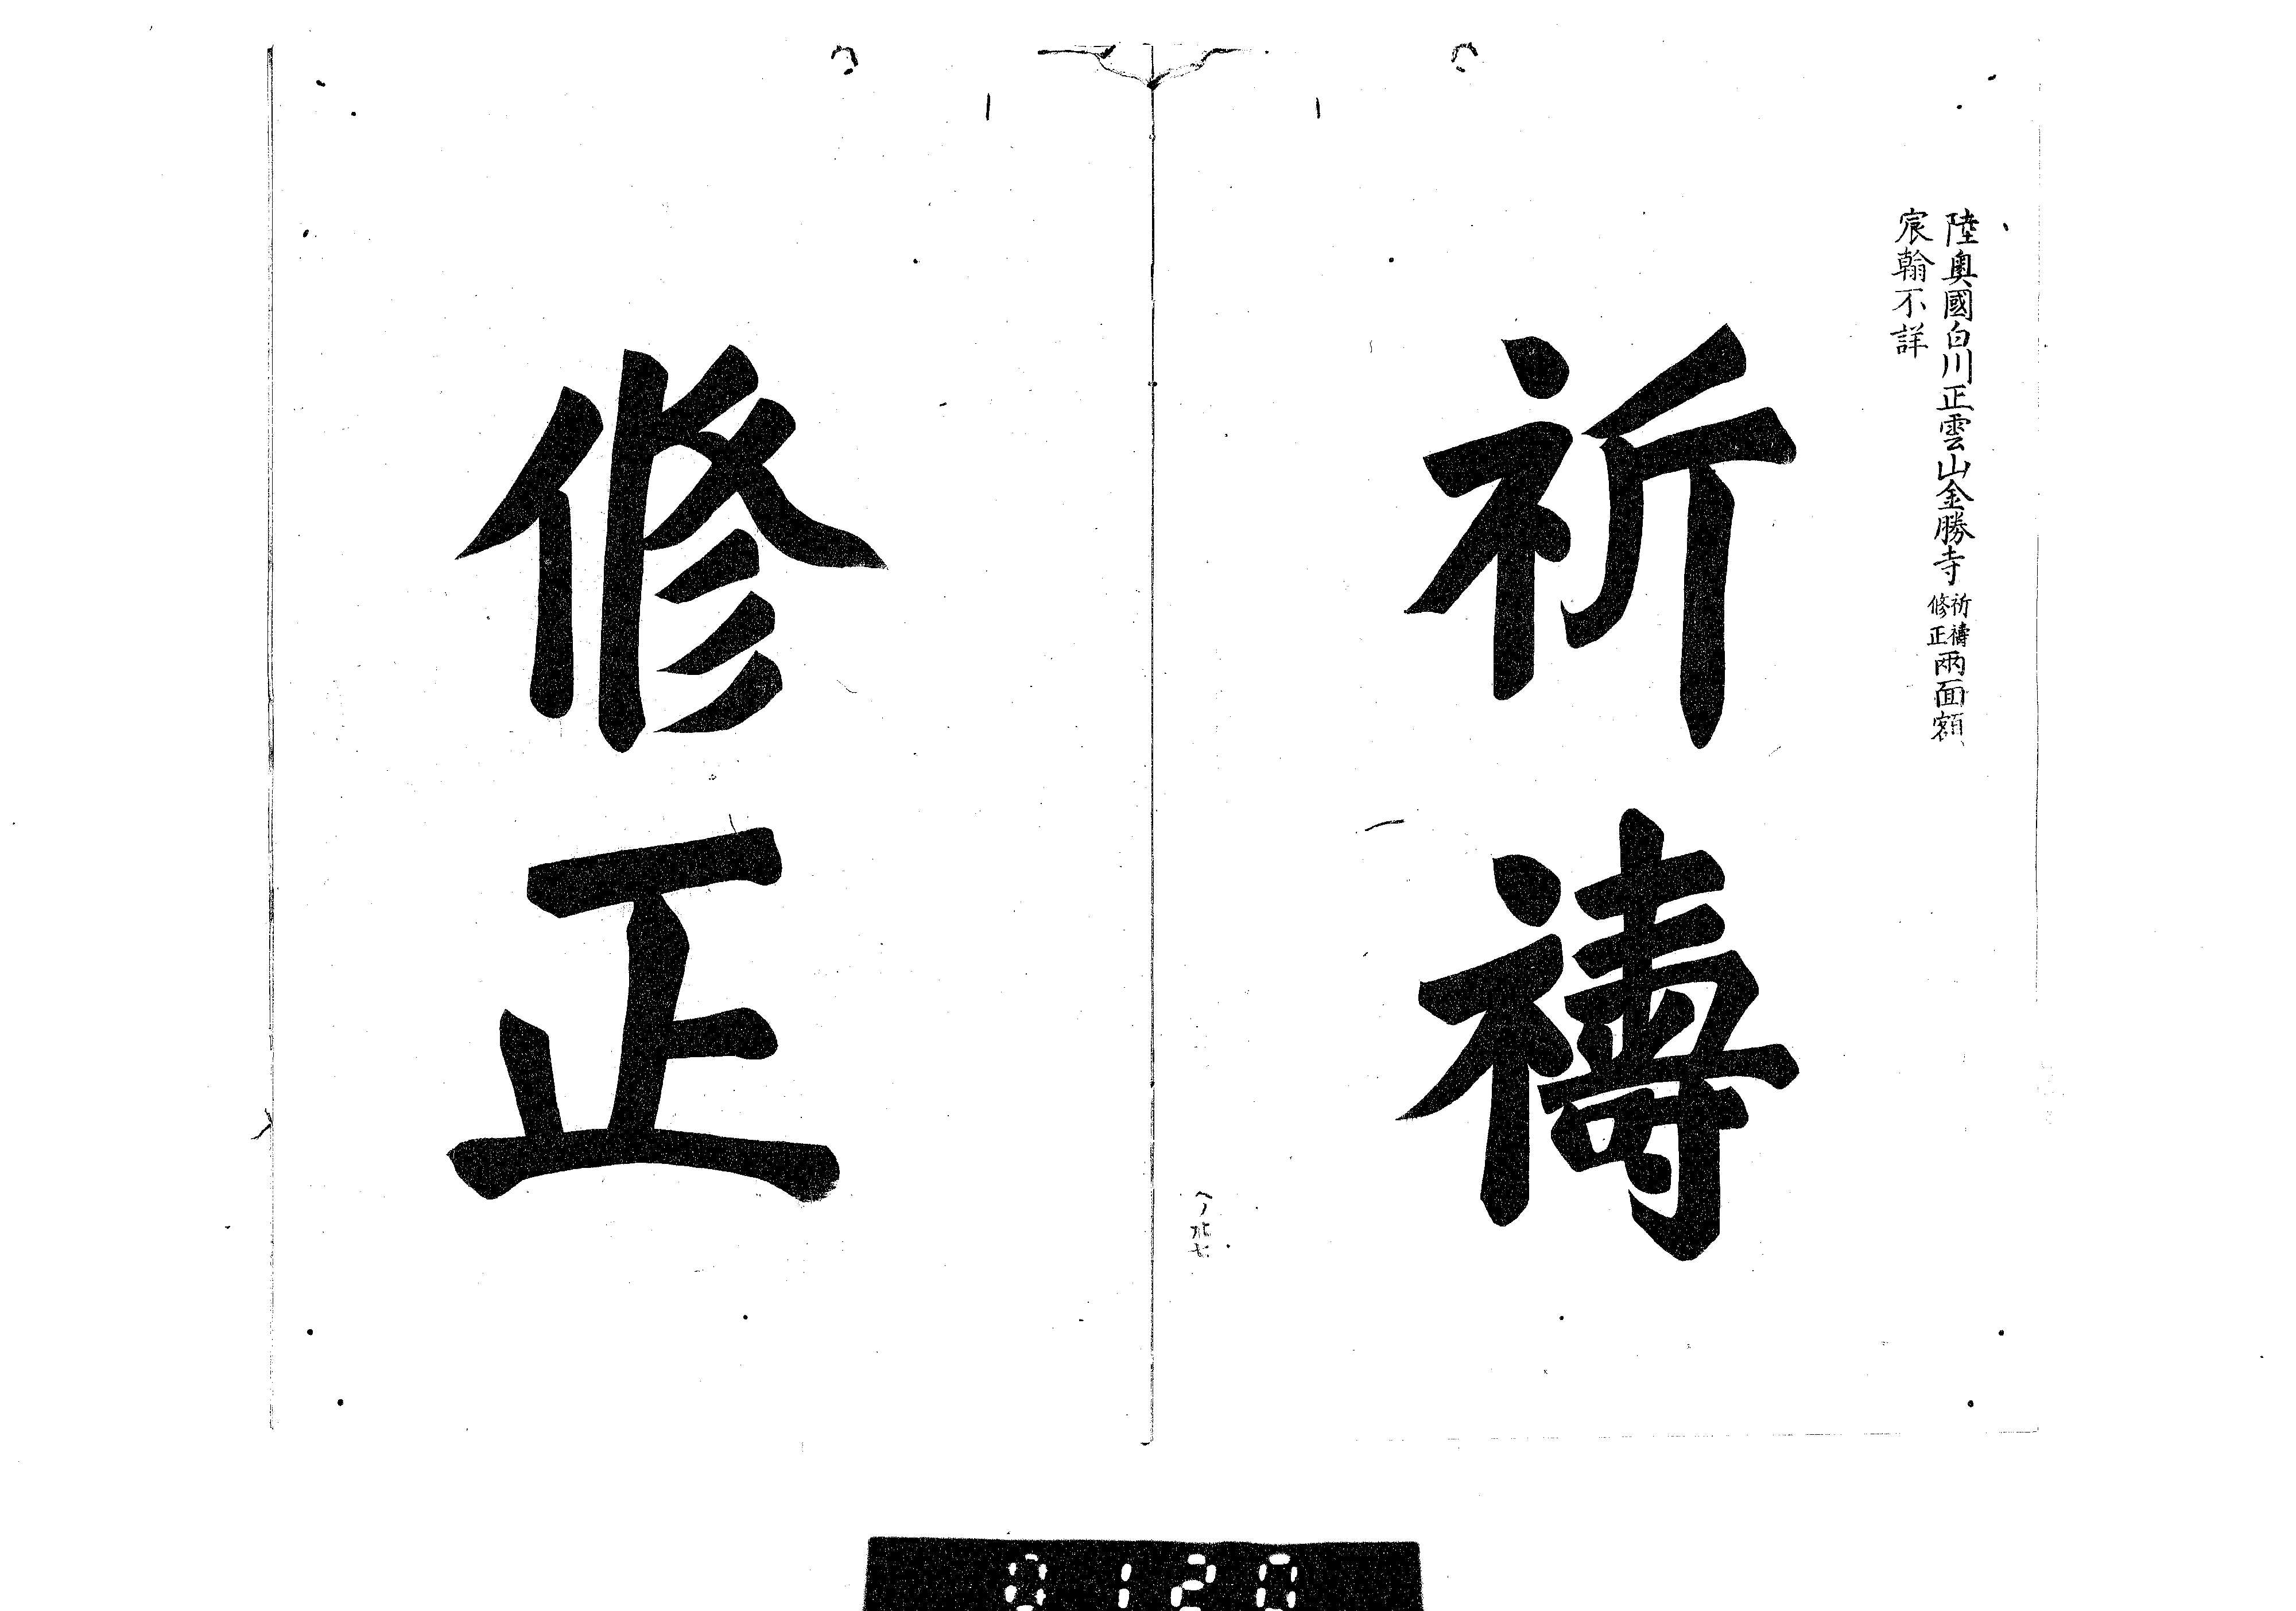 陸奧國白川正雲山金勝寺祈禱修正兩面額
宸翰不詳
祈禱
修正
0120